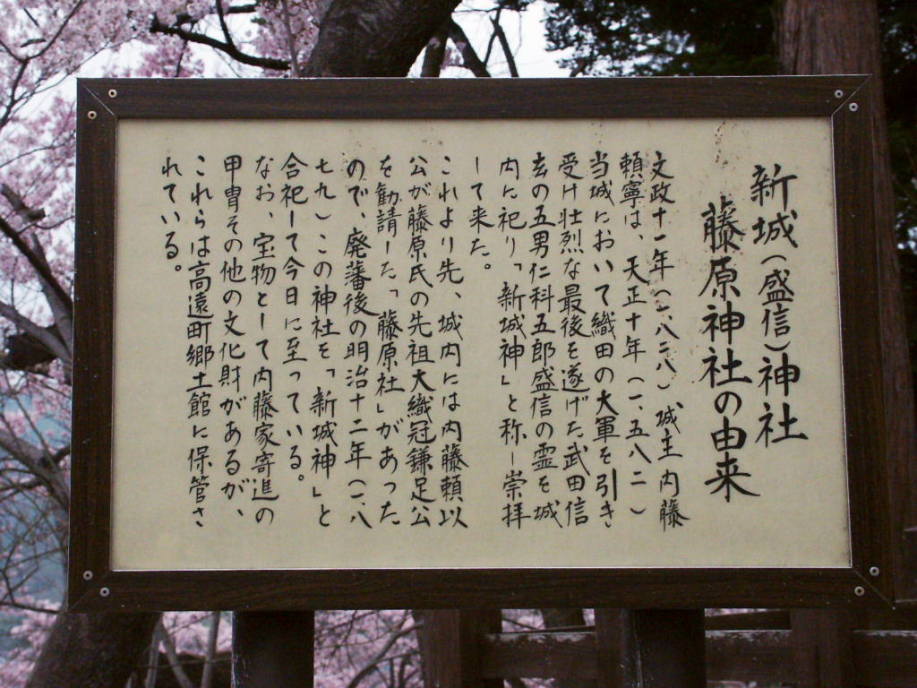 新城(盛信)神社
藤原神社の由来
文政十一年(一、八二八)城主内藤
頼寧は、天正十年(一、五八二)
当城において織田の大軍を引き
受け壮烈な最後を遂げた武田信
玄の五男仁科五郎盛信の霊を城
内に祀り「新城神」と称し崇拝
して来た。
これより先、城内には内藤頼以
公が藤原氏の先祖大織冠鎌足公
を勧請した「藤原社」があった
ので、廃藩後の明治十二年(一、八
七九)この神社を「新城神」と
合祀して今日に至っている。
なお、宝物として内藤家寄進の
甲冑その他の文化財があるが、
これらは高遠町郷土館に保管さ
れている。